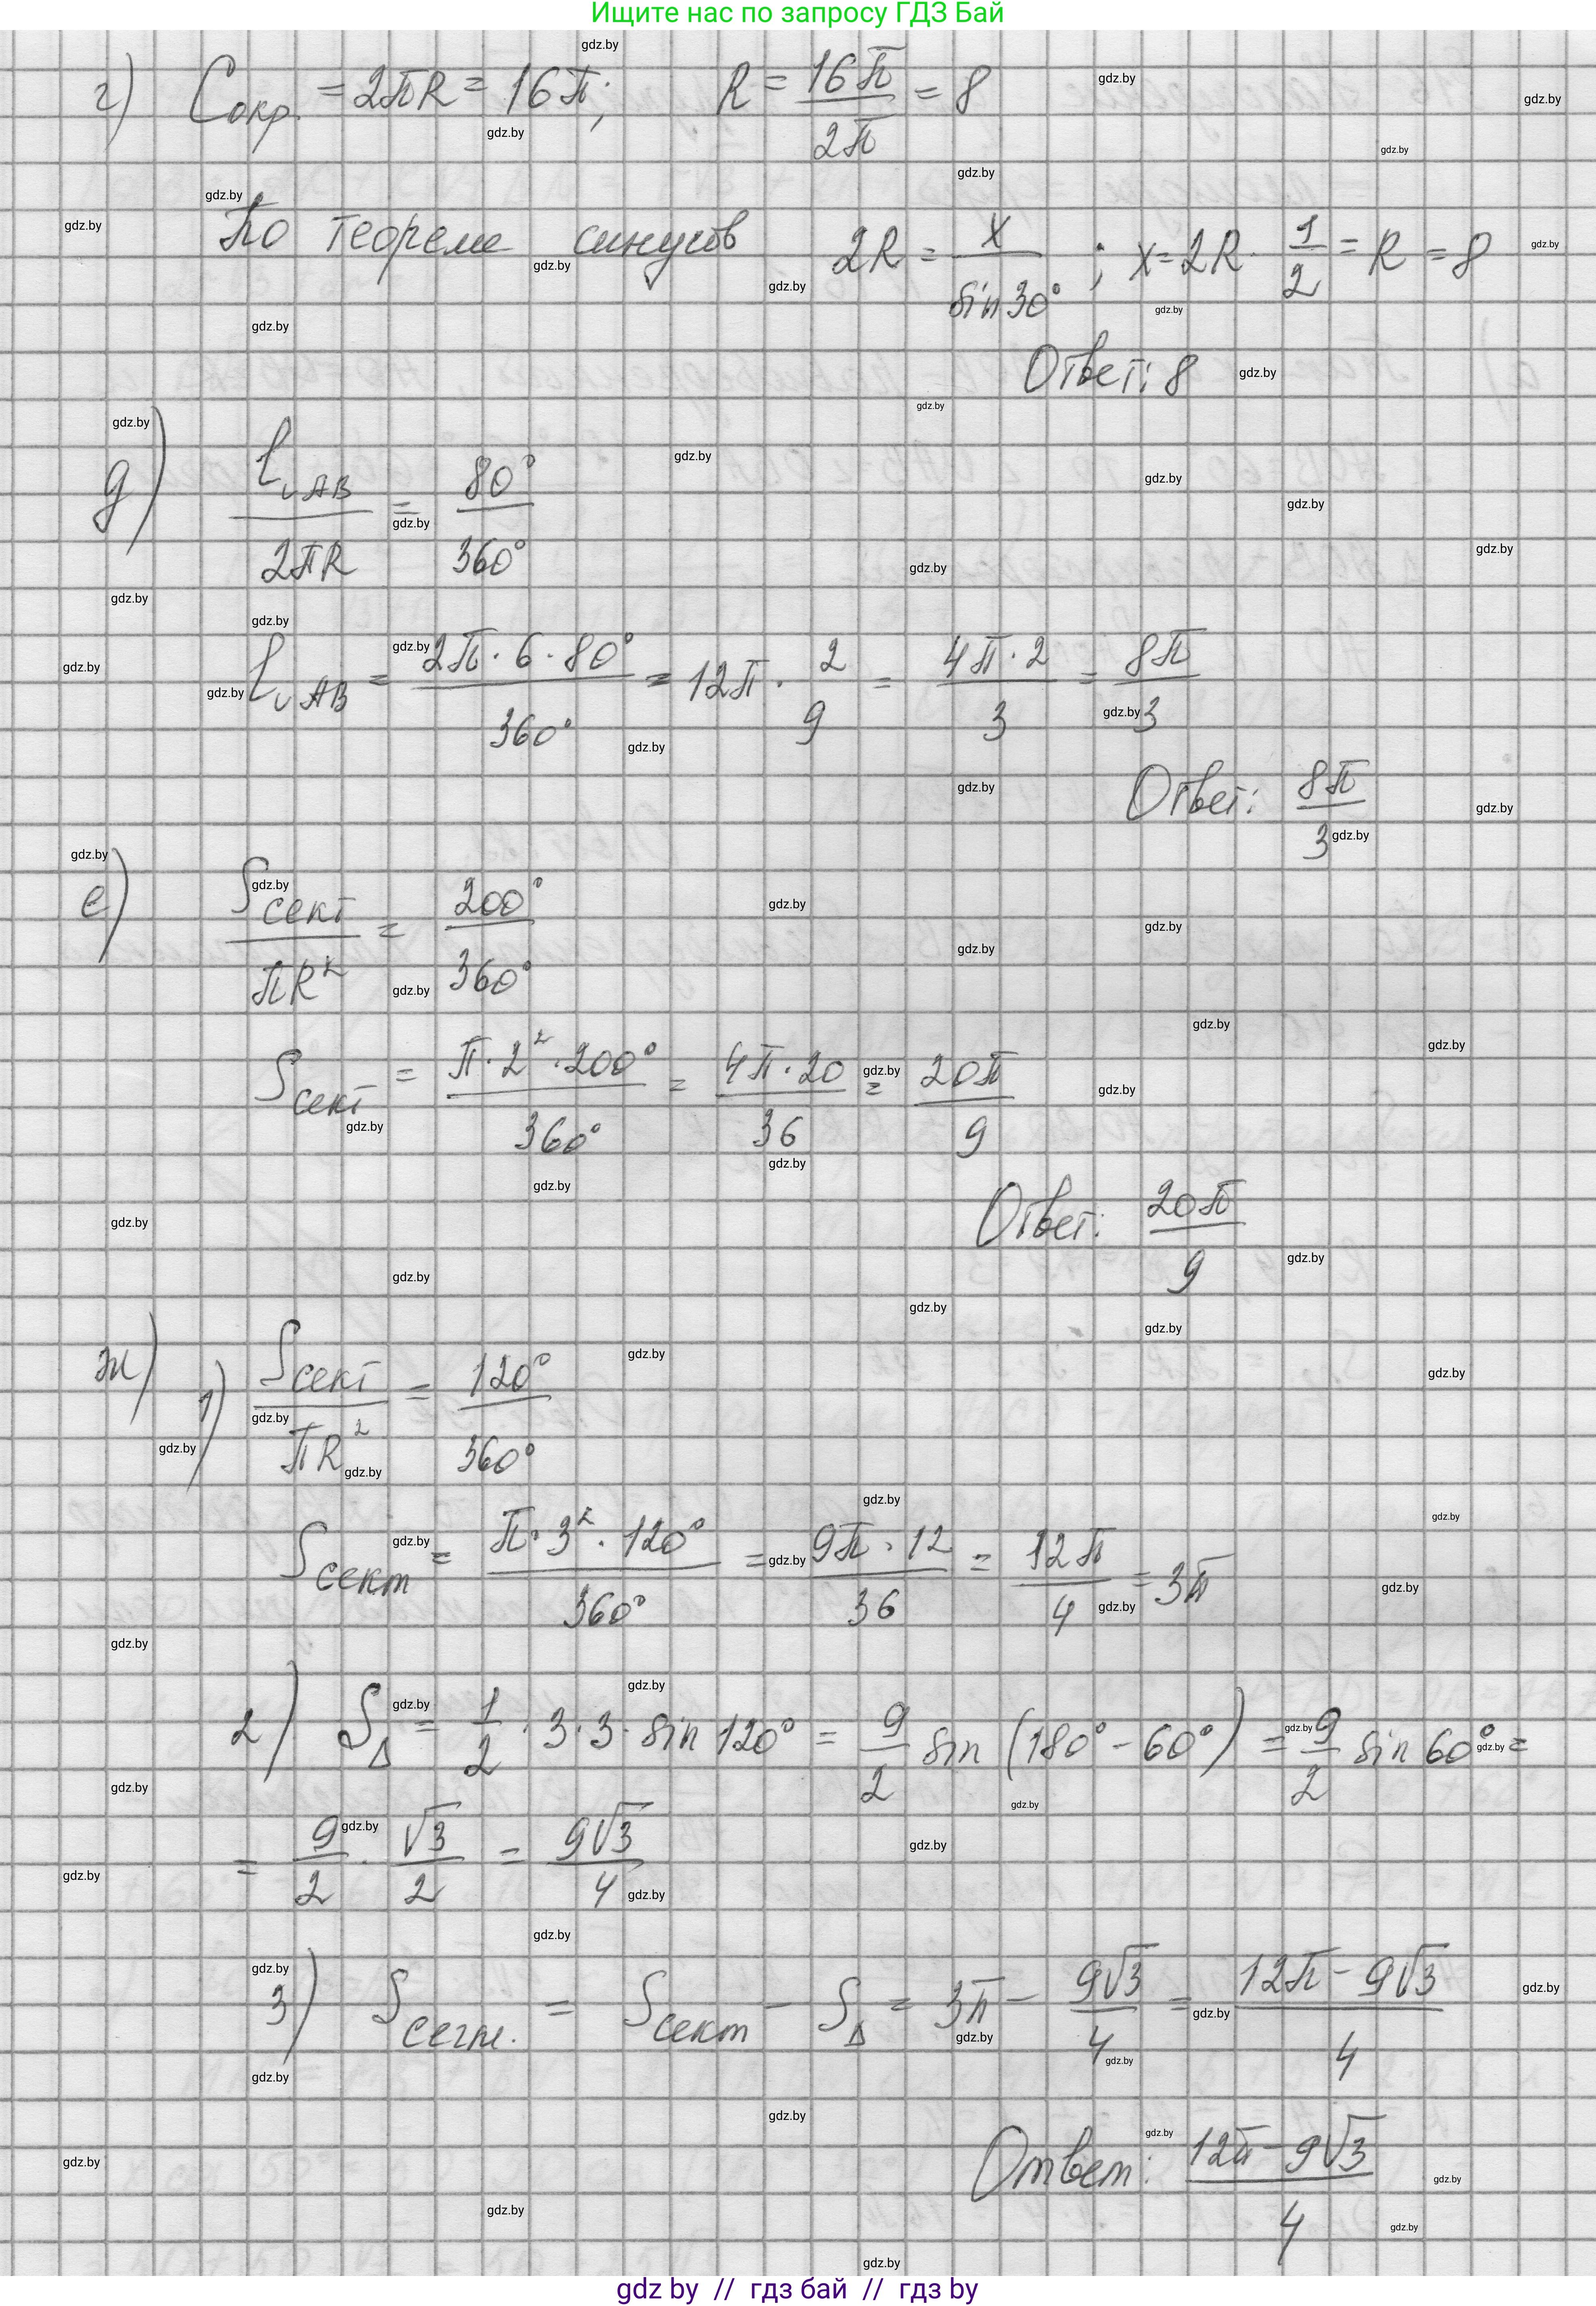 Ищите нас по запросу ГДЗ Бай
г) Cокр. = 2πR = 16π; R = 16π/2π = 8
По теореме синусов 2R = x/sin30°; x = 2R · 1/2 = R = 8
Ответ: 8
д) l◡AB/2πR = 80°/360°
l◡AB = 2π · 6 · 80°/360° = 12π · 2/9 = 4π · 2/3 = 8π/3
Ответ: 8π/3
е) Sсект/πR² = 200°/360°
Sсект = π · 2² · 200°/360° = 4π · 20/36 = 20π/9
Ответ: 20π/9
ж) 1) Sсект/πR² = 120°/360°
Sсект = π · 3² · 120°/360° = 9π · 12/36 = 12π/4 = 3π
2) S△ = 1/2 · 3 · 3 · sin 120° = 9/2 sin (180° − 60°) = 9/2 sin 60° =
= 9/2 · √3/2 = 9√3/4
3) Sсегм. = Sсект − S△ = 3π − 9√3/4 = 12π − 9√3/4
Ответ: 12π − 9√3/4
gdz by // гдз бай // гдз by